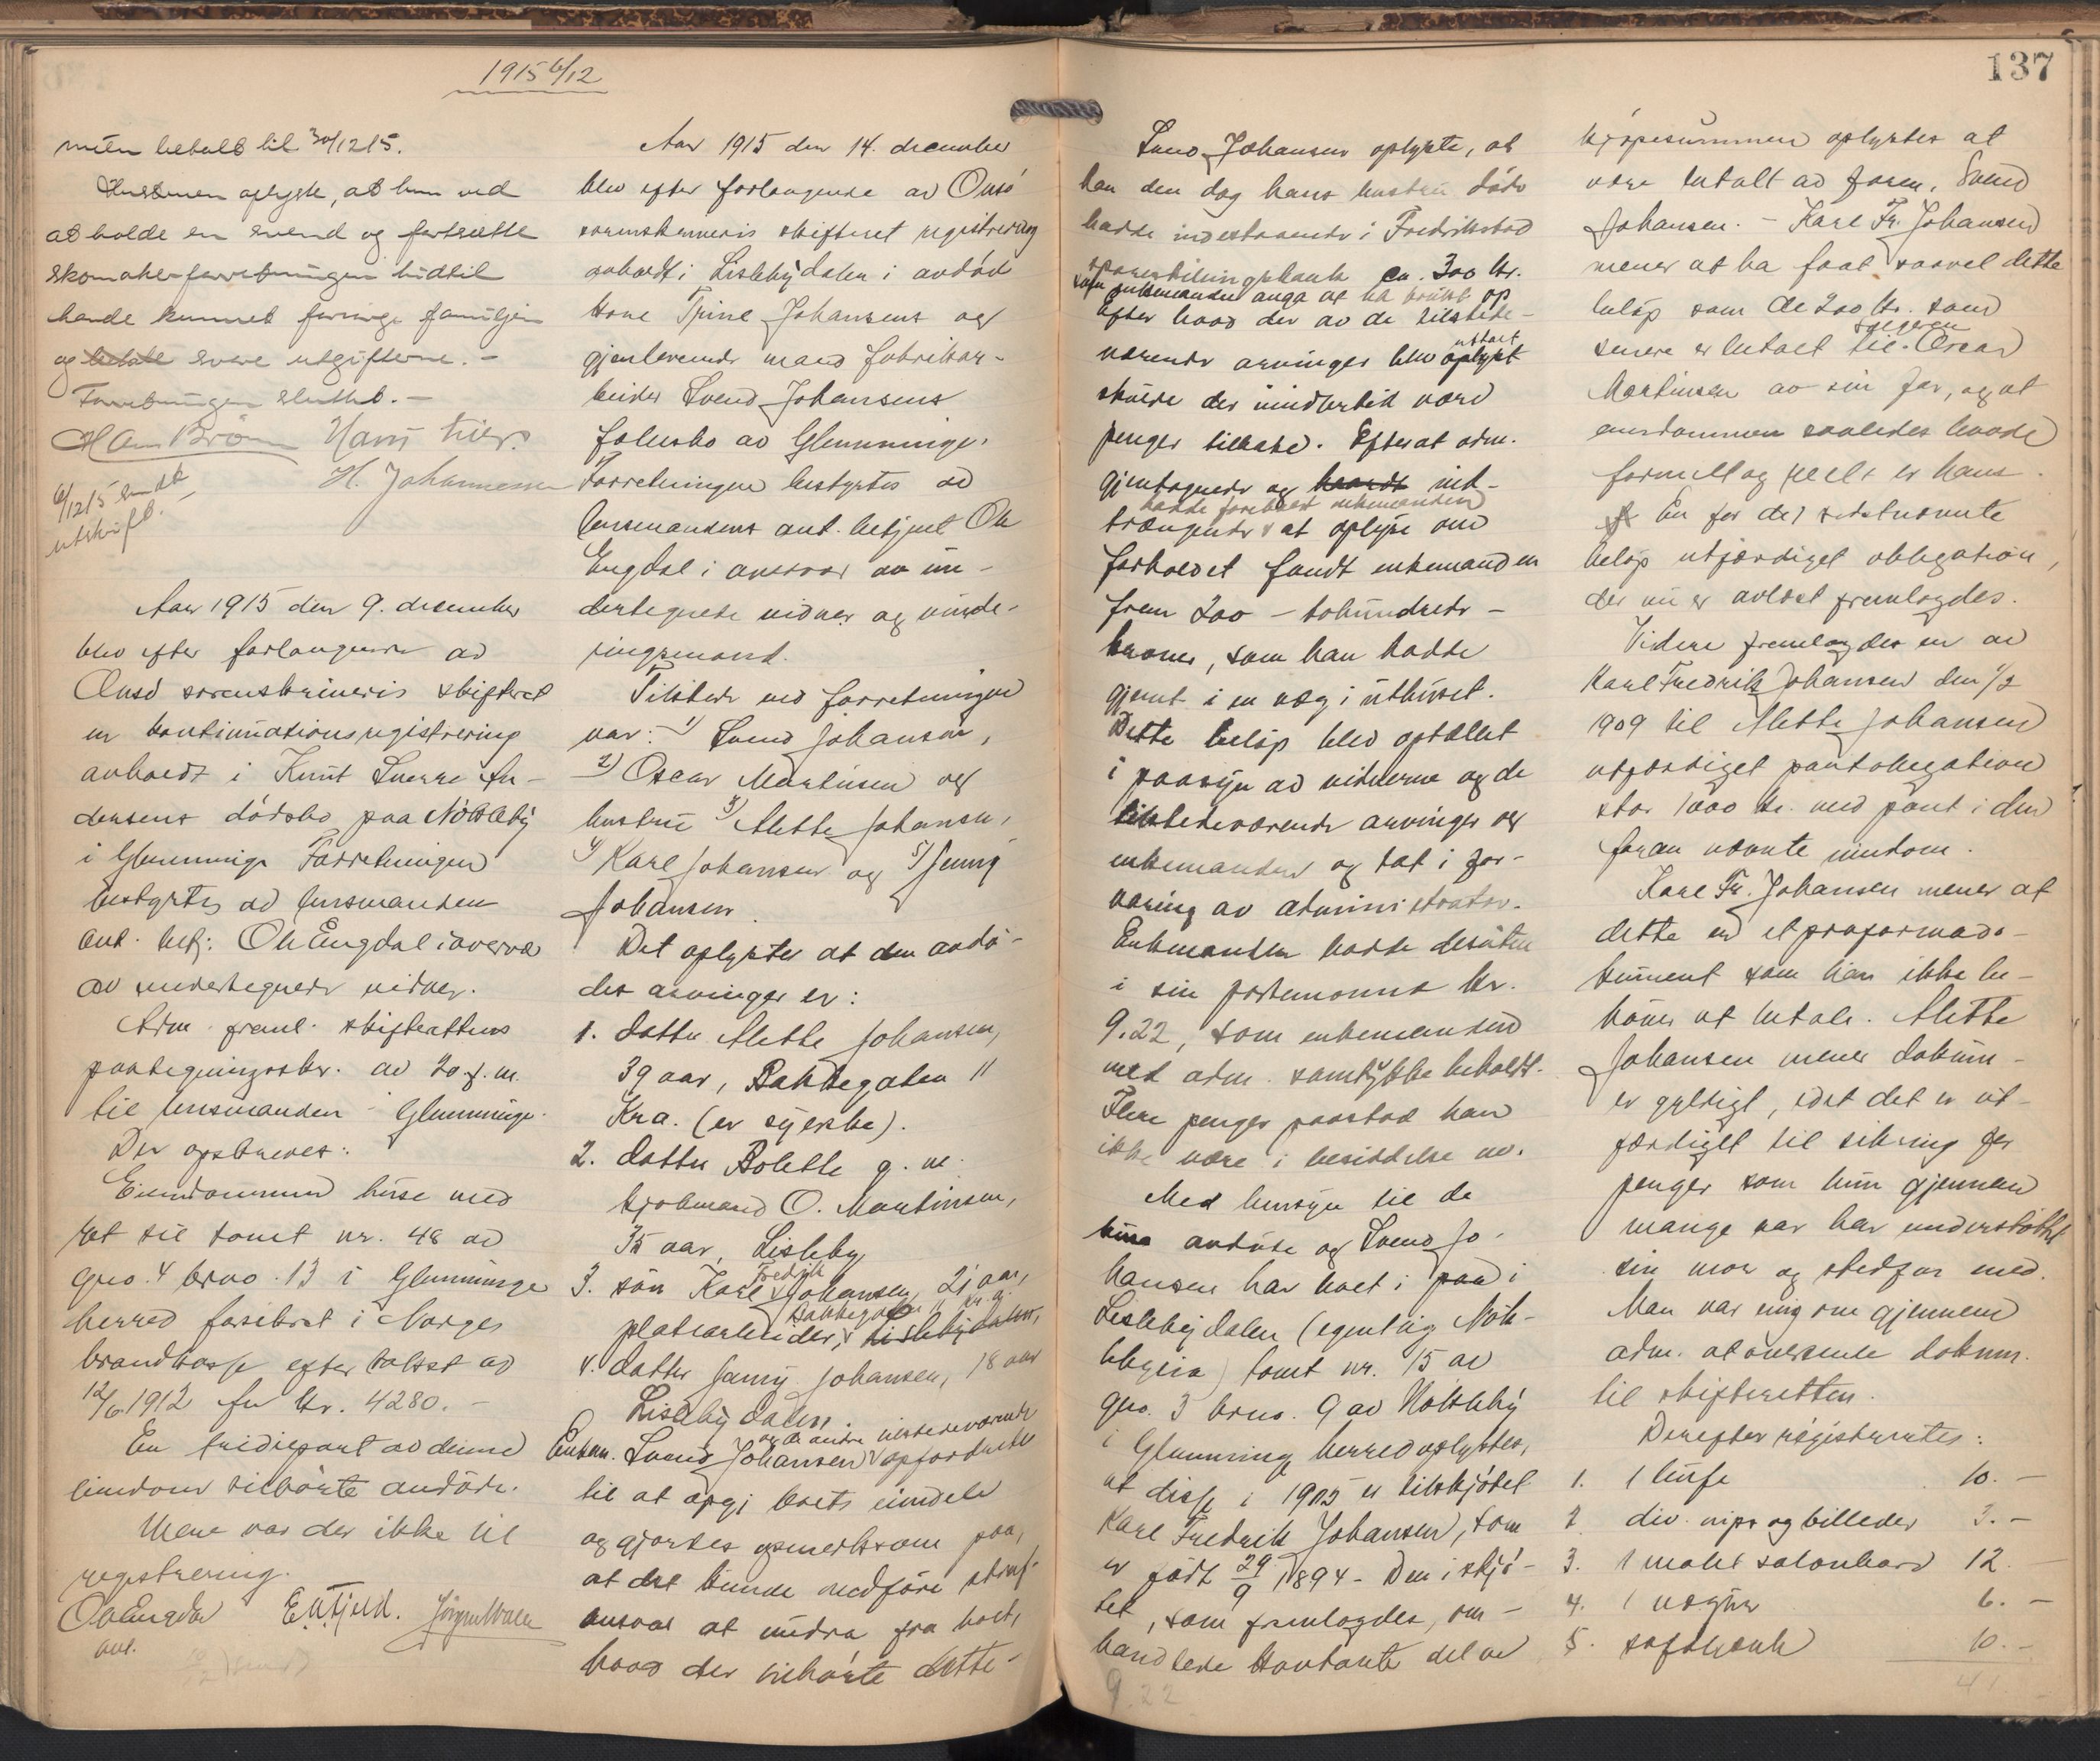 1915 6/12
137
miten betalt til 30/12 15.
Hustruen oplyste, at hun ved
at holde en svend og fortsætte
skomakerforretningen hidtil
havde kunnet forsørge familjen
og betale svare utgifterne. -
Forretningen sluttet. -
H. Johannessen
6/12 15 sendt
utskrift.
Aar 1915 den 9. december
blev efter forlangende av
Onsö sorenskriveris skifteret
en kontinuationsregistrering
avholdt i Knut Sverre An-
densens dödsbo paa Nökleby
i Glemminge Forretningen
bestyrtes av lensmanden
aut. betj. Ole Engdal i overvær
av undertegnede vidner.
Adm. freml. skifterettens
paategningsskr. av 20. f. m.
til lensmanden i Glemminge.
Der opskreves:
Eiendommen huse med
ret til tomt nr. 48 av
gno. 4 brno. 13 i Glemminge
herred forsikret i Norges
brandkasse efter takst av
12/6 1912 for kr. 4280. -
En tridiepart av denne
eiendom tilhörte avdöde.
Mere var der ikke til
registrering.
Ole Engdal E. N. Fjeld. Jörgen
aut.
Aar 1915 den 14. december
blev efter forlangende av Onsö
sorenskriveris skifteret registrering
avholdt i Lislebydalen i avdöde
kone Trine Johansens og
gjenlevende mand fabrikar-
beider Svend Johansens
fælesbo av Glemminge.
Forretningen bestyrtes av
lensmandens aut. betjent Ole
Engdal i overvær av un-
dertegnede vidner og vurde-
ringsmænd.
Tilstede ved forretningen
var: 1) Svend Johansen,
2) Oscar Martinsen og
hustru 3) Mette Johansen,
4) Karl Johansen og 5) Jenny
Johansen.
Det oplystes at den avdö-
des arvinger er:
1. datter Mette Johansen,
39 aar, Bakkegaten 11
Kra. (er syerske).
2. datter Bolette g. m.
kjöbmand O. Martinsen,
35 aar, Lisleby
3. sön Karl Fredrik Johansen, 21 aar,
platearbeider, Bakkegaten 11 Kr.a. Lislebydalen,
4. datter Jenny Johansen, 18 aar
Lislebydalen.
Enkem. Svend Johansen og de andre tilstedeværende opfordredes
til at opgi boets eiendele
og gjordes opmerksom paa,
at det kunde medföre straf-
ansvar at undra fra boet,
hvad der tilhörte dette.
Svend Johansen oplyste, at
han den dag hans hustru döde
hadde indestaaende i Fredrikstad
sparebank ca. 300 kr.
som enkemanden anga at ha brukt op
Efter hvad der av de tilstede-
værende arvinger blev oplyst uttalt
skulde der imidlertid være
penger tilbake. Efterat adm.
gjentagende og haardt ind-
trængende hadde forehold enkemanden at oplyse om
forholdet fandt enkemanden
frem 200 - tohundrede -
kroner, som han hadde
gjemt i en væg i uthuset.
Dette belöp blev optællet
i paasyn av vidnerne og de
tilstedeværende arvinger og
enkemanden og tat i for-
varing av administrator.
Enkemanden hadde desuten
i sin portemonna kr.
9.22, som enkemanden
med adm. samtykke beholdt.
Flere penger paastod han
ikke være i besiddelse av.
Med hensyn til de
huse avdöde og Svend Jo-
hansen har boet i paa i
Lislebydalen (egentlig Nök-
legeia) tomt nr. 15 av
gno. 3 brno. 9 av Nökleby
i Glemminge herred oplystes,
at disse i 1905 er tilskjötet
Karl Fredrik Johansen, som
er født 29/9 1894. Den i skjö-
tet, som fremlagdes, om-
handlede kontante del av
9.22
kjöpesummen oplystes at
være betalt av faren, Svend
Johansen. - Karl Fr. Johansen
mener at ha faat saavel dette
belöp som de 200 kr. som
senere er betalt til sælgeren Oscar
Martinsen av sin far, og at
eiendommen saaledes baade
formelt og reelt er hans.
En for det sidstnævnte
belöp utfærdiget obligation,
der nu er avlöst fremlagdes.
Videre fremlagdes en av
Karl Fredrik Johansen den 1/2
1909 til Mette Johansen
utfærdiget pantobligation
stor 1000 kr. med pant i den
foran nævnte eiendom.
Karl Fr. Johansen mener at
dette er et proformado-
kument som han ikke be-
höver at betale. Mette
Johansen mener dokum-
er gyldigt, idet det er ut-
færdiget til sikring for
penger som hun gjennem
mange aar har understöttet
sin mor og stedfar med.
Man var enig om gjennem
adm. at oversende dokum.
til skifteretten.
Derefter registrertes:
1. 1 lise 10. -
2. div. nips og billeder 3. -
3. 1 malt salonbord 12. -
4. 1 vægur 6. -
5. sofabænk 10. -
41. -